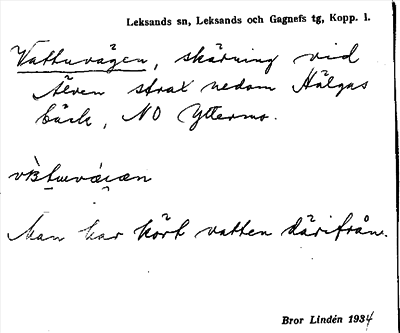 Leksands sn, Leksands och Gagnefs tg, Kopp. l.
Vattuvägen, skärning vid
Älven strax nedom Hälgas
bäck, NO Yttermo.
Man har kört vatten därifrån.
Bror Lindén 1934